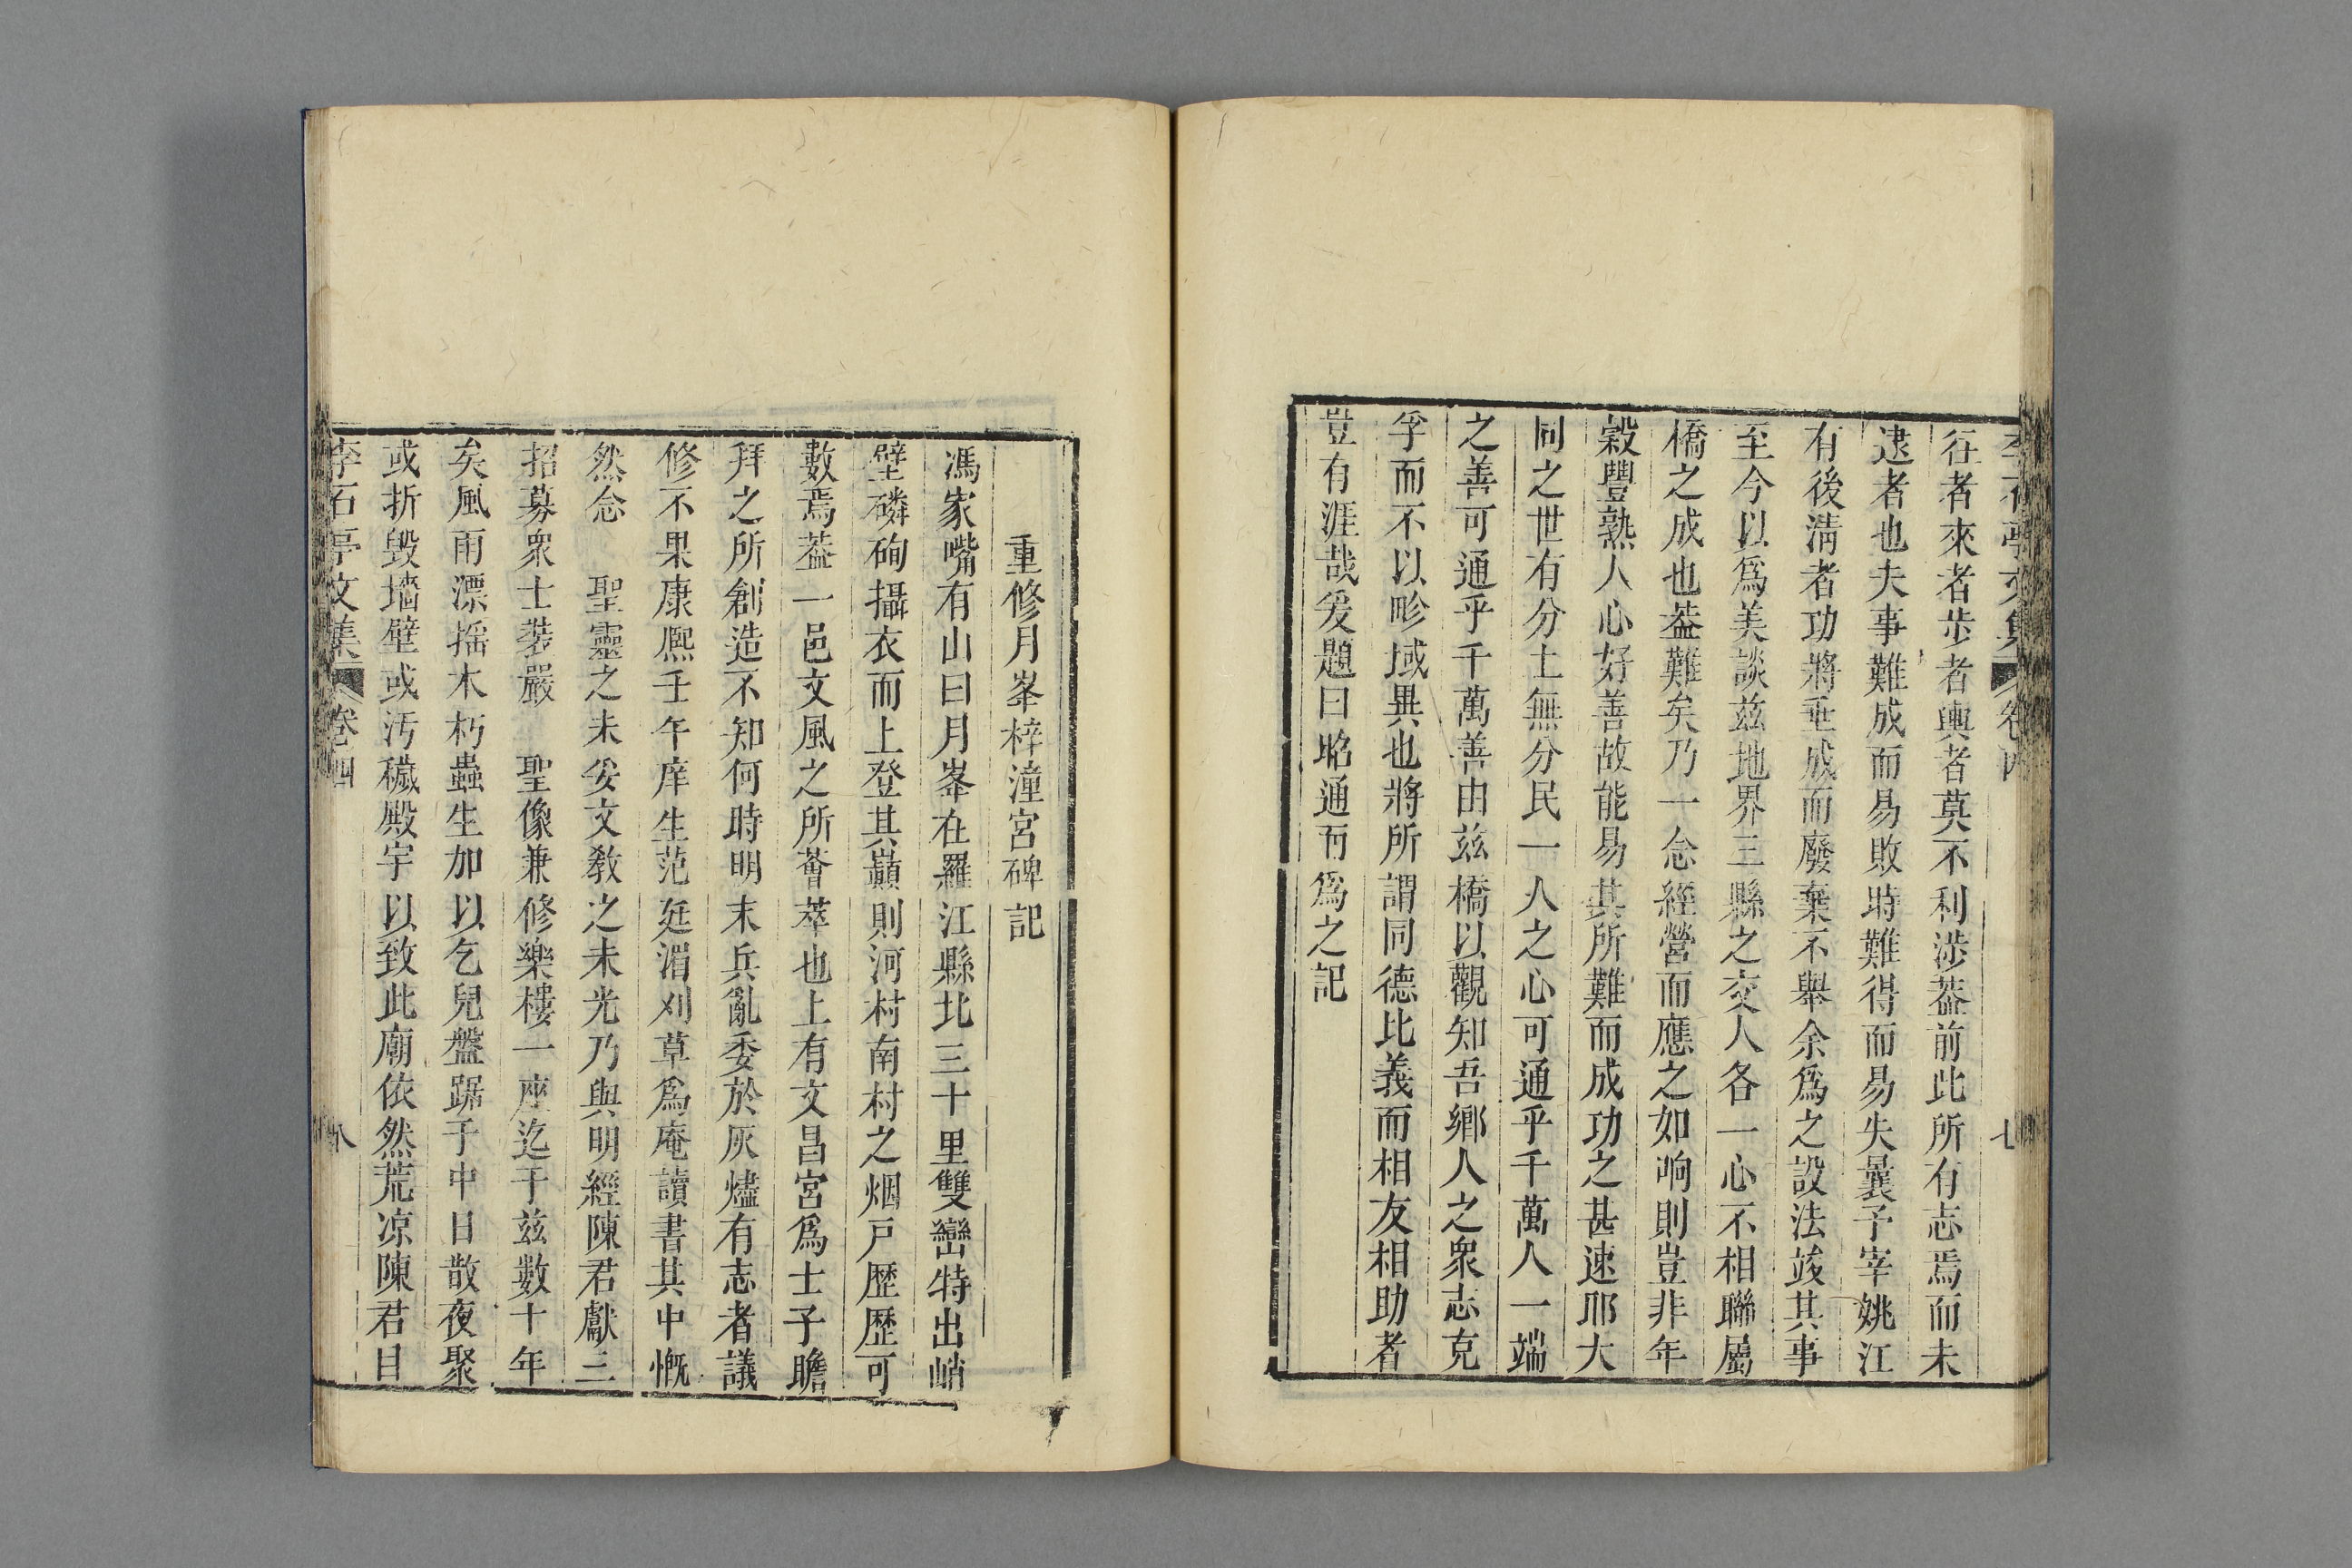 李石亭文集 卷四 七
往者來者步者輿者莫不利涉葢前此所有志焉而未
逮者也夫事難成而易敗時難得而易失曩予宰姚江
有後淸者功將垂成而廢棄不舉余爲之設法竣其事
至今以爲美談茲地界三縣之交人各一心不相聯屬
橋之成也葢難矣乃一念經營而應之如响則豈非年
穀豐熟人心好善故能易其所難而成功之甚速耶大
同之世有分土無分民一人之心可通乎千萬人一端
之善可通乎千萬善由茲橋以觀知吾鄉人之衆志克
孚而不以畛域異也將所謂同德比義而相友相助者
豈有涯哉爰題曰昭通而爲之記
重修月峯梓潼宮碑記
馮家嘴有山曰月峯在羅江縣北三十里雙巒特出峭
壁磷硇攝衣而上登其巔則河村南村之烟戸歷歷可
數焉葢一邑文風之所薈萃也上有文昌宮爲士子瞻
拜之所創造不知何時明末兵亂委於灰燼有志者議
修不果康熙壬午庠生范延湄刈草爲庵讀書其中慨
然念 聖靈之未妥文敎之未光乃與明經陳君獻三
招募衆士裝嚴 聖像兼修樂樓一座迄于茲數十年
矣風雨漂搖木朽蟲生加以乞兒盤踞于中日散夜聚
或折毀墻壁或汚穢殿宇以致此廟依然荒凉陳君目
李石亭文集 卷四 八